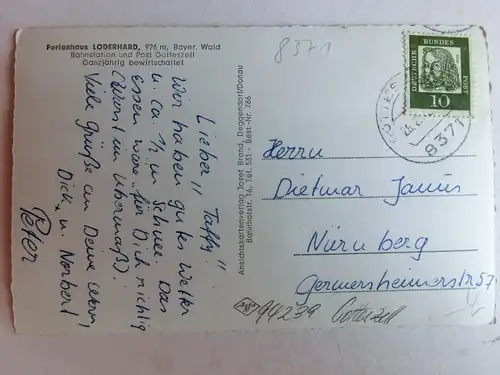 Ferienhaus LODERHARD, 926 m, Bayer. Wald
Bahnstation und Post Gotteszell
Ganzjährig bewirtschaftet
Lieber "Taffy"!
Wir haben gutes Wetter
u. ca. ½ m Schnee. Das
Essen wäre für Dich richtig
(Wurst im Übermaß).
Viele Grüße an Deine Eltern,
Dick u. Norbert
Peter
Ansichtskartenverlag Josef Brand, Deggendorf/Donau
Bahnhofstr. 16, Tel. 531 - Best.-Nr. 786
8371
DEUTSCHE BUNDESPOST
10
8371
Herrn
Dietmar Janus
Nürnberg
Germersheimerstr. 57
99239 Gotteszell